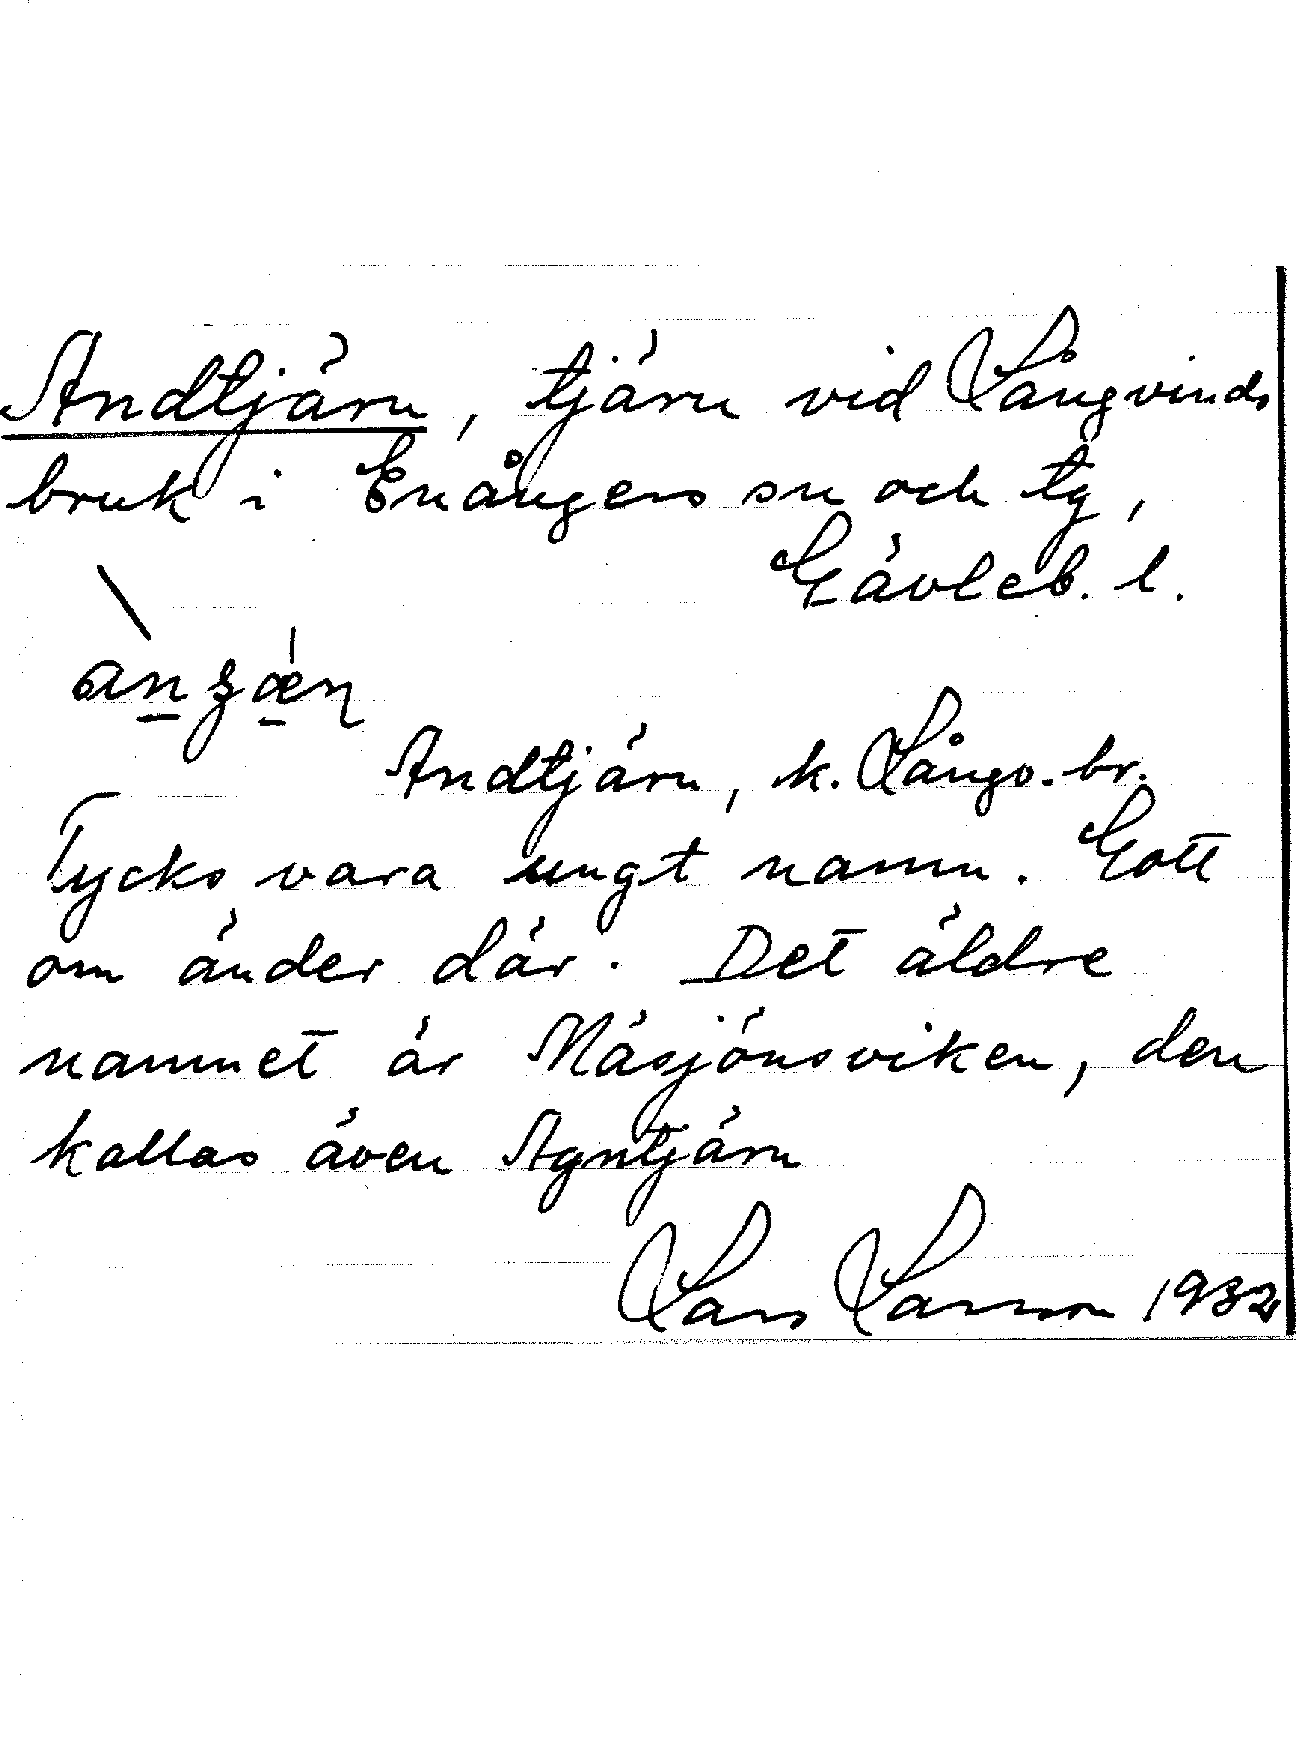 Andtjärn, tjärn vid Långvinds
bruk i Enångers sn och tg,
Gävleb. l.
Andtjärn, k. Långv. br.
Tycks vara ungt namn. Gott
om änder där. Det äldre
namnet är Näsjönsviken, den
kallas även Agntjärn
Lars Larsson 1932